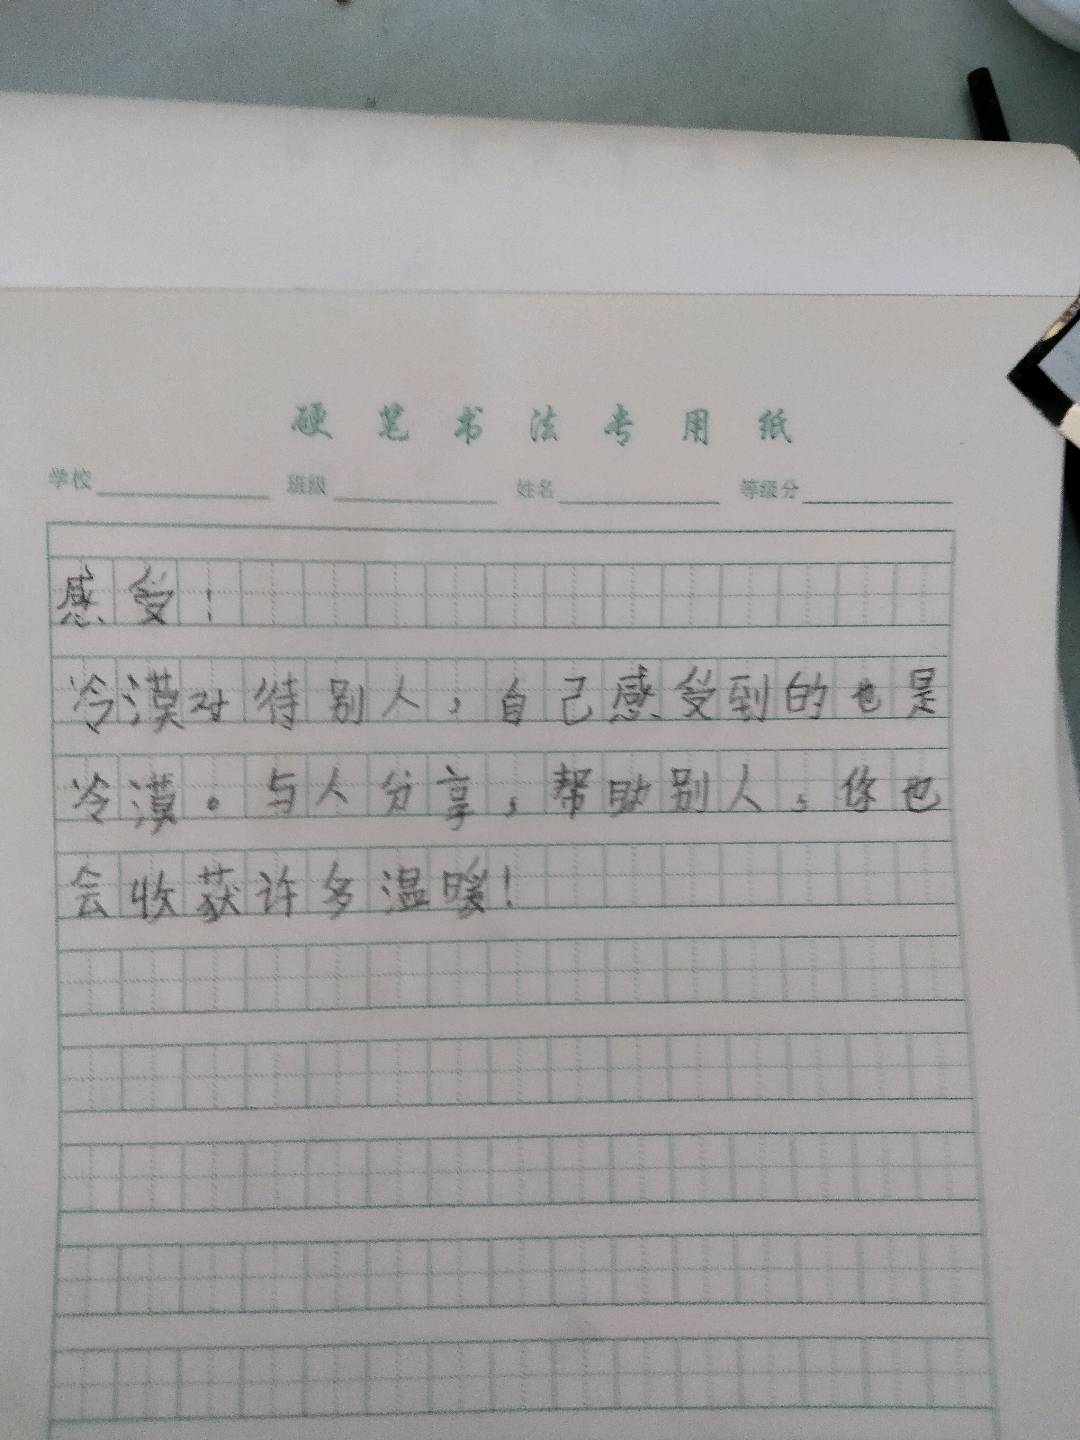 硬笔书法专用纸
学校 班级 姓名 等级分
感受！
冷漠对待别人，自己感受到的也是
冷漠。与人分享，帮助别人，你也
会收获许多温暖！